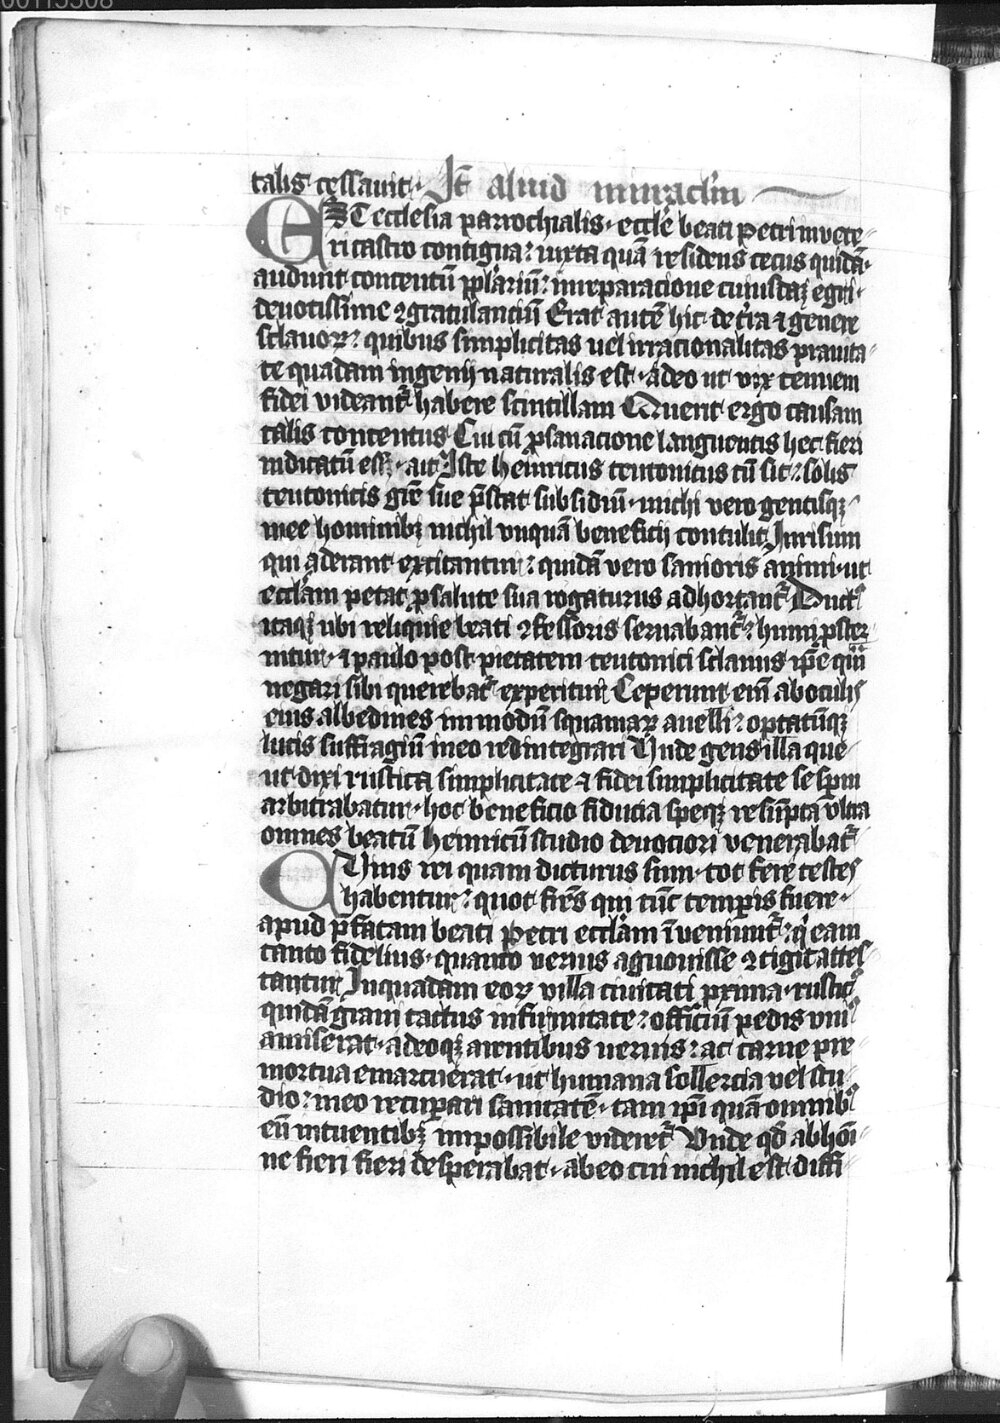 00115308
talis cessauit · Jt̄ aliud miraclm̄
EST ecclesia parrochialis · eccl̄e beati petri in vete-
ri castro contigua : iuxta quā residens cecus quidā ·
audiuit · concentū pplariū : in reparacione cuiusdaꝫ egri ·
deuotissime ꝯgratulanciū Erat autē hic · de t̄ra ⁊ genere
sclauoꝝ : quibus simplicitas uel irracionalitas prauita-
te quadam ingenij naturalis est · adeo ut vix tenuem
fidei videant̄ habere scintillam Querit ergo causam
talis concentus Cui cū ꝑsanacione languentis hec fieri
indicatū essꝫ · ait Iste heinricus teutonicus cū sit : solis
teutonicis gr̄e sue p̄stat subsidiū · michi vero gentisqꝫ
mee hominibꝫ nichil vnquā beneficij contulit Jn risum
qui aderant excitantur : quidā vero sanioris animi · ut
eccl̄am petat ꝓ salute sua rogaturus adhortant̄ Duct⁹
itaqꝫ ubi reliquie beati ꝯfessoris seruabant̄ : humi ꝓster
nitur · ⁊ paulo post pietatem teutonici sclauus ip̄e quā
negari sibi querebat̄ experitur Ceperunt em̄ ab oculis
eius albedines in modū squamaꝝ auelli : optatūqꝫ
lucis suffragiū in eo redintegrari Unde gens illa que
ut dixi rustica simplicitate ⁊ fidei simplicitate se sp̄ni
arbitrabatur · hoc beneficio fiducia speqꝫ resūpta vltra
omnes beatū heinricū studio deuociori venerabat̄
CUius rei quam dicturus sum · tot fere testes
habentur : quot fr̄es qui tūc temꝑis fuere ·
apud p̄fatam beati petri eccl̄am īueniunt̄ : q̄ eam
tanto fidelius · quanto verius agnouisse ꝯtigit attes
tantur Jn quadam eoꝝ villa ciuitati ꝓxima · rustic⁹
quidā graui tactus infirmitate : officiū pedis vni⁹
amiserat · adeoqꝫ arentibus neruis : ac carne pre
mortua emarcuerat · ut humana sollercia vel stu
dio : in eo recuꝑari sanitatē · tam ip̄i quā omnib⁹
eū intuentibꝫ impossibile videret̄ Unde qd̄ ab hōi
ne fieri fieri desperabat · ab eo cui nichil est diffi